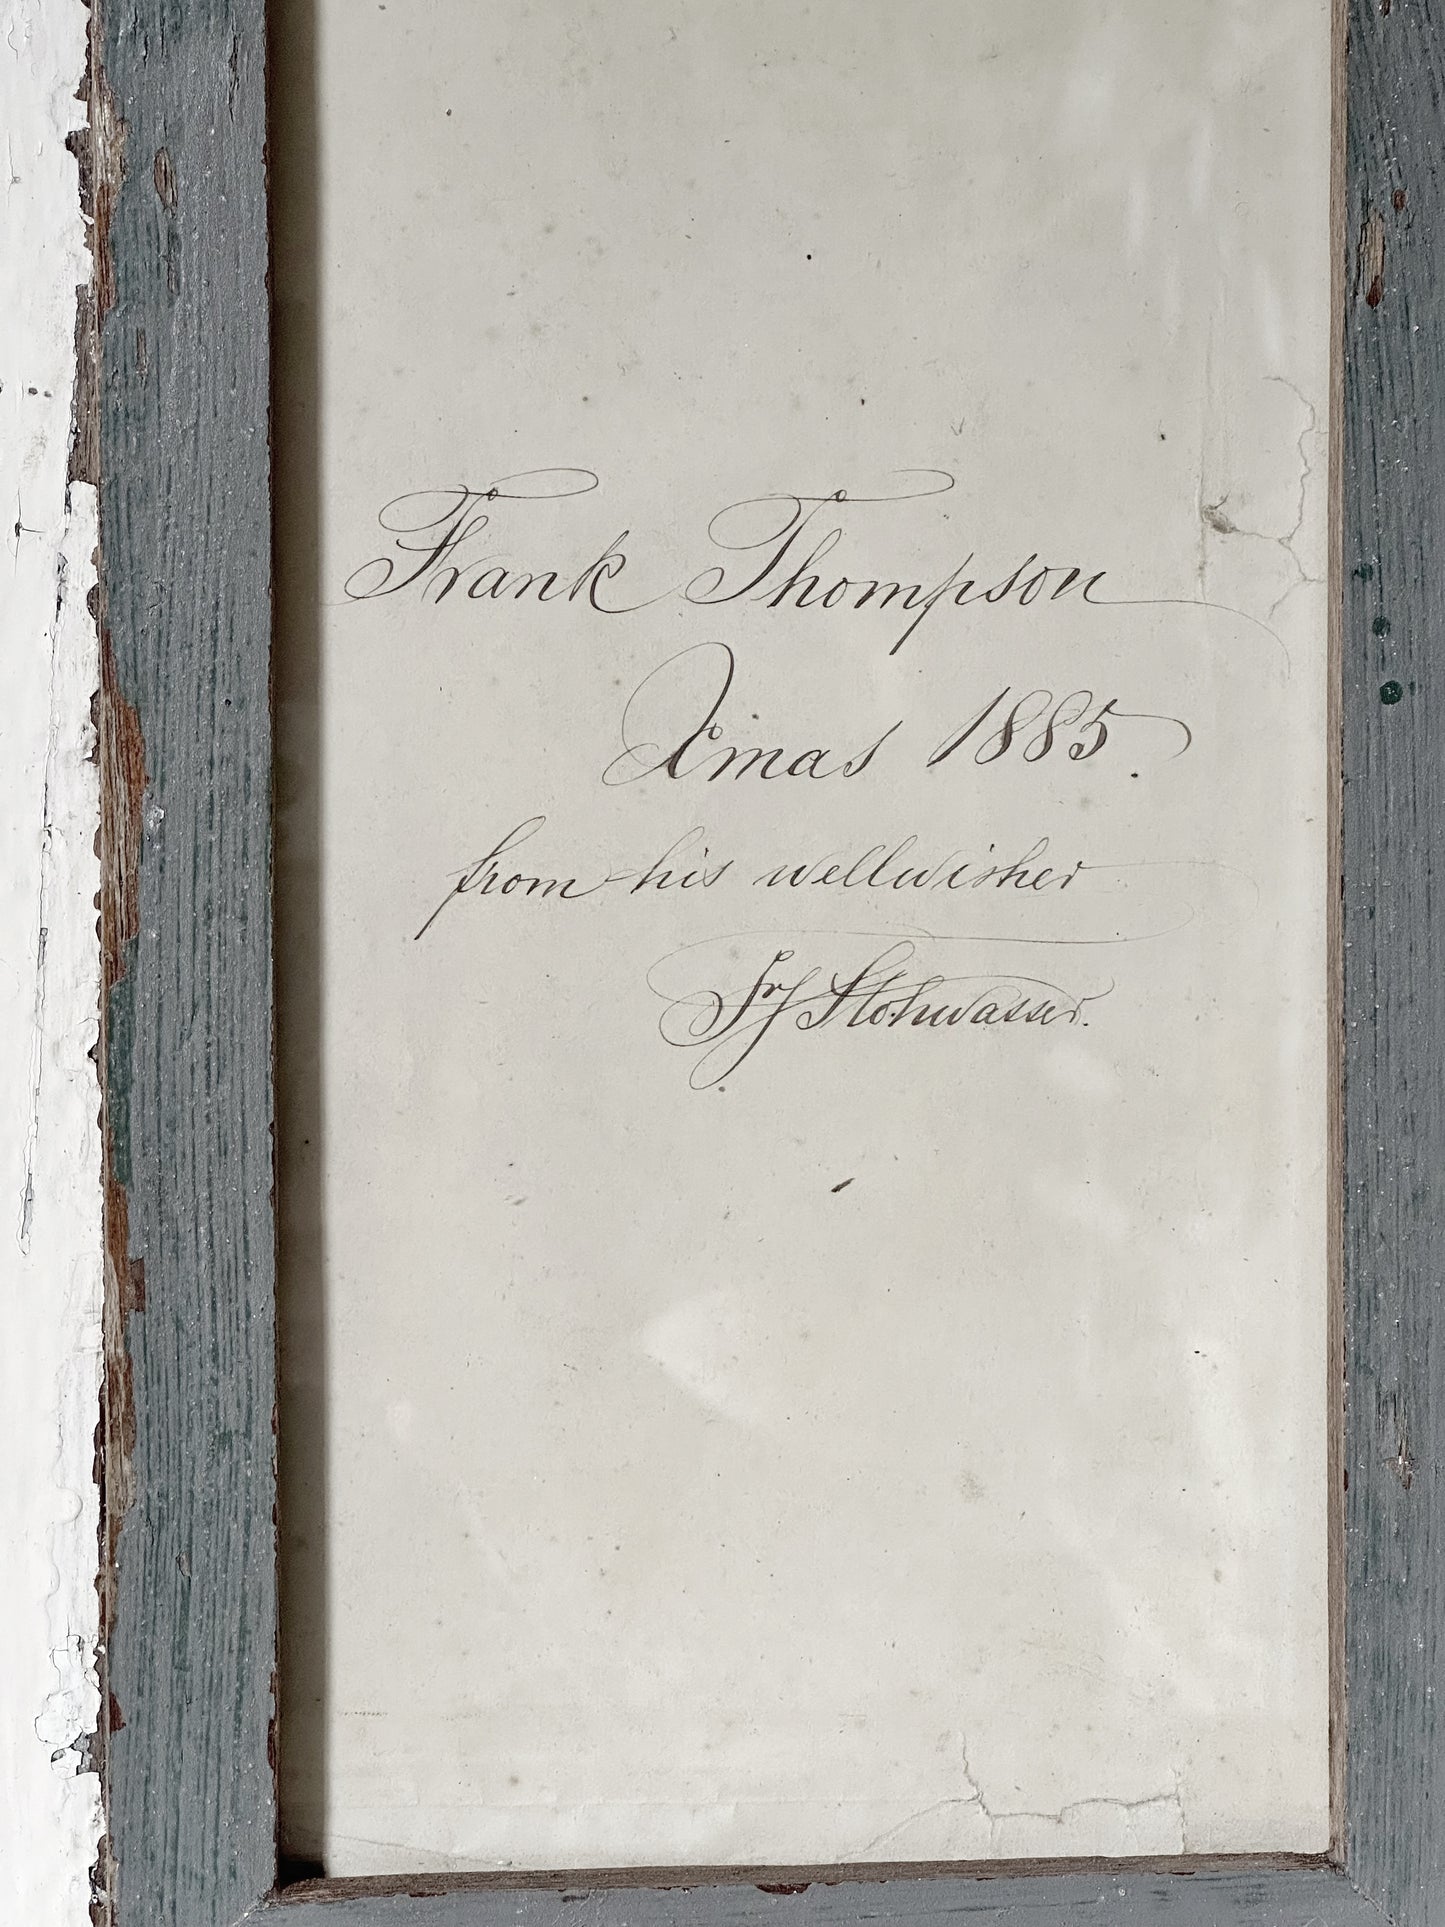 Frank Thompson
Xmas 1885.
from his wellwisher
Stohwasser.